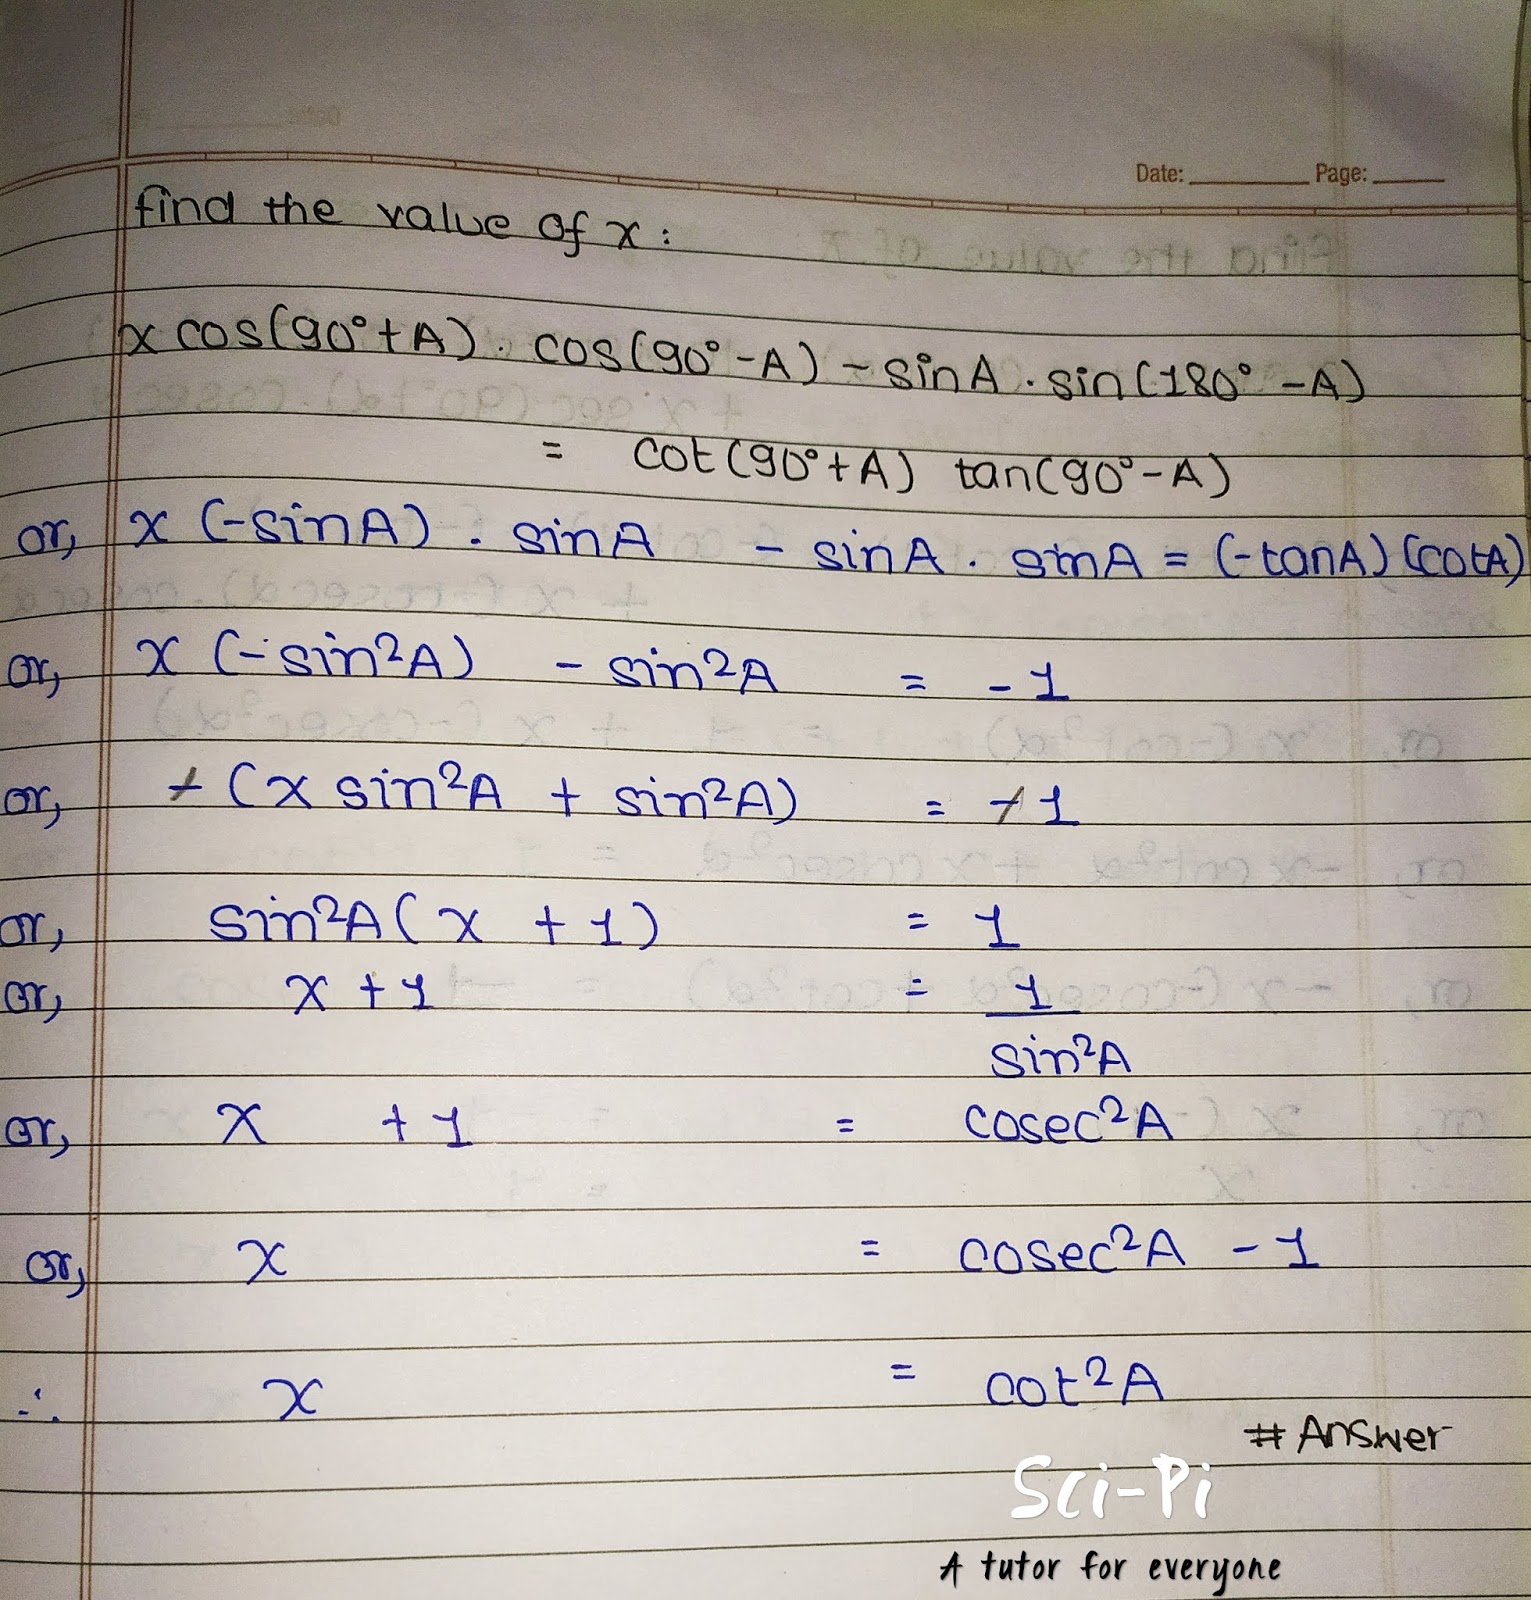 Date: ________ Page: _____
find the value of x:
x cos(90°+A). cos(90°-A) - sinA . sin(180° -A)
= cot(90°+A) tan(90°-A)
or, x (-sinA) . sinA - sinA . sinA = (-tanA) (cotA)
or, x (-sin²A) - sin²A = -1
or, -(x sin²A + sin²A) = -1
or, sin²A(x + 1) = 1
or, x + 1 = 1
sin²A
or, x + 1 = cosec²A
or, x = cosec²A - 1
∴ x = cot²A
# Answer
Sci-Pi
A tutor for everyone